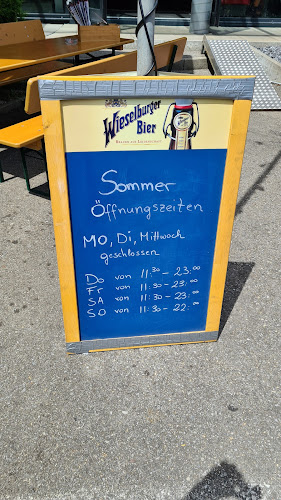 Wieselburger
Bier
Sommer
Öffnungszeiten
MO, Di, Mittwoch
geschlossen
Do von 11:30 - 23:00
Fr von 11:30 - 23:00
SA von 11:30 - 23:00
SO von 11:30 - 22:00